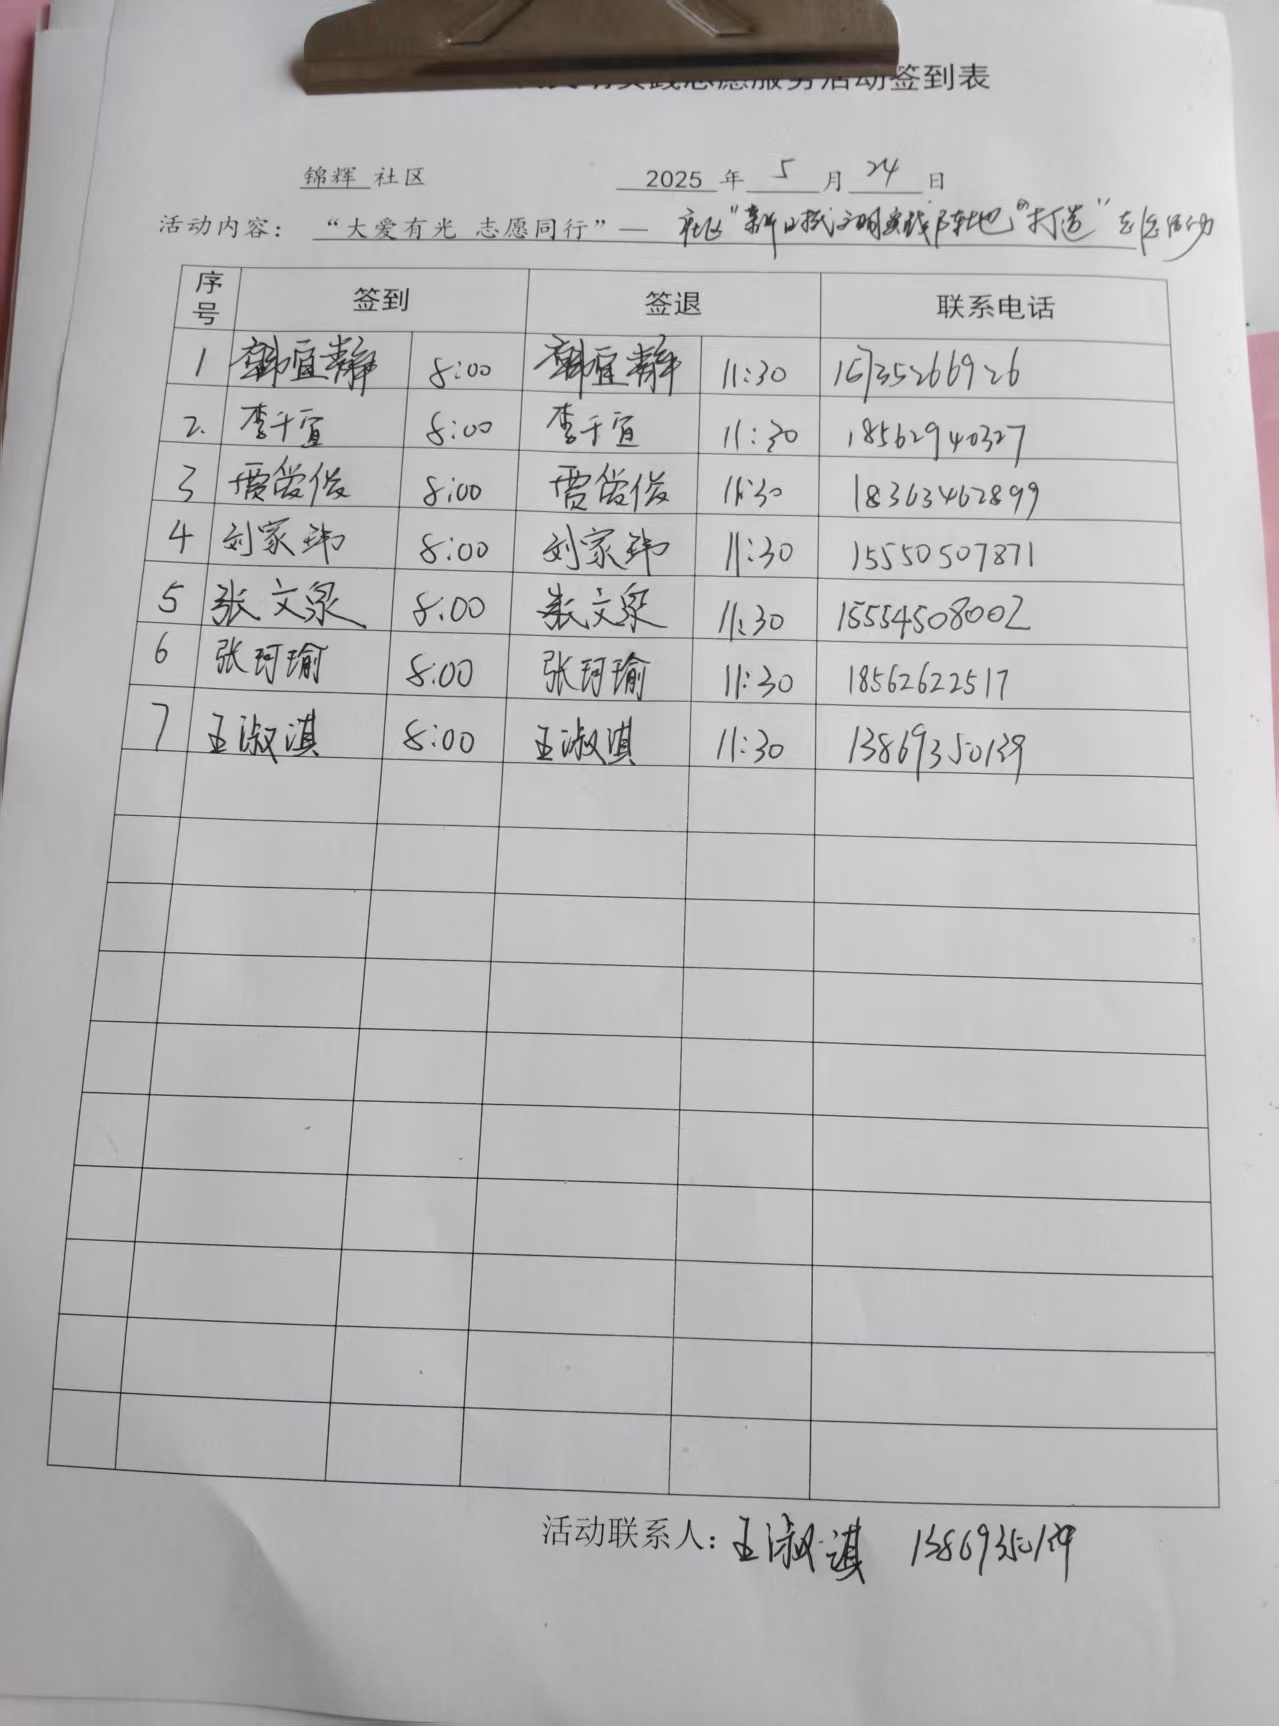 实践志愿服务活动签到表
锦辉 社区 2025 年 5 月 24 日
活动内容：“大爱有光 志愿同行”— 社区“新时代文明实践阵地”打造”志愿活动
序号 签到 签退 联系电话
1 韩宜静 8:00 韩宜静 11:30 15735266926
2. 李千宜 8:00 李千宜 11:30 18562940327
3 贾俊 8:00 贾俊 11:30 18363462899
4 刘家玮 8:00 刘家玮 11:30 15550507871
5 张文泉 8:00 张文泉 11:30 15554508002
6 张珂瑜 8:00 张珂瑜 11:30 18562622517
7 王淑淇 8:00 王淑淇 11:30 13869350139
活动联系人：王淑淇 13869350139